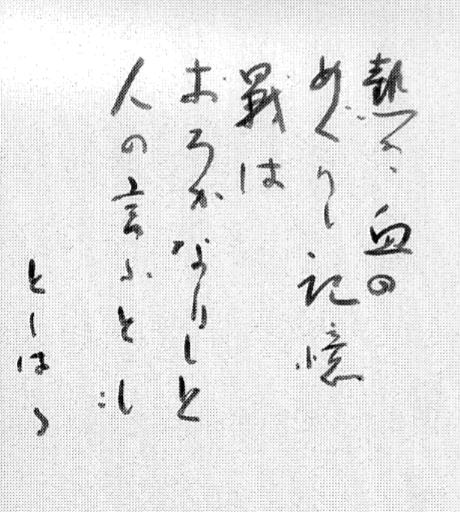 熱き血の
めぐりし記憶
戦は
おろかなりしと
人の言ふとも
としはる